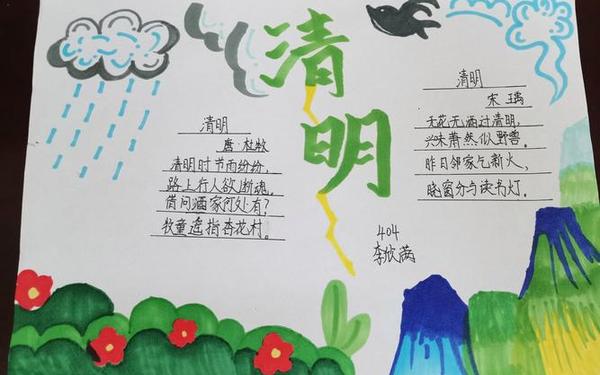 清明
清明
唐·杜牧
清明时节雨纷纷,
路上行人欲断魂。
借问酒家何处有?
牧童遥指杏花村。
清明
宋
无花无酒过清明,
兴味萧然似野兽。
昨日邻家乞新火,
晓窗分与读书灯。
404
李欣满